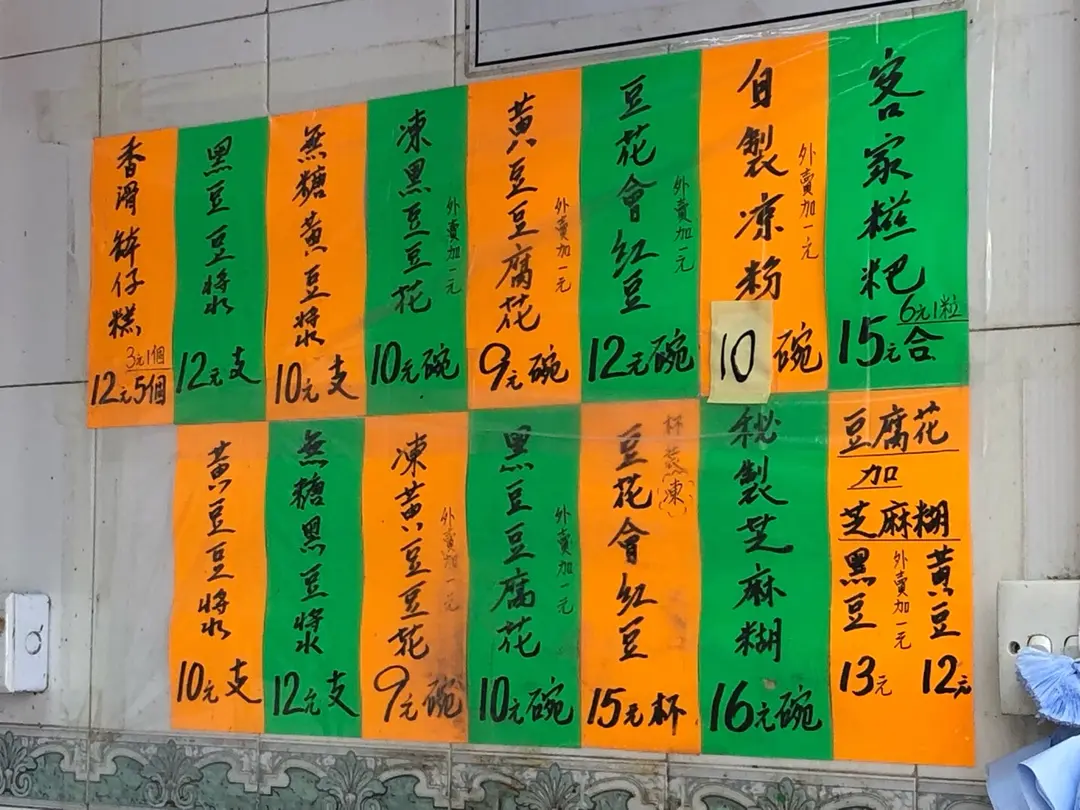 客家糍粑
6元1粒
15元合
自製凉粉
外賣加一元
10碗
豆花會紅豆
外賣加一元
12元碗
黃豆豆腐花
外賣加一元
9元碗
凍黑豆豆花
外賣加一元
10元碗
無糖黃豆漿
10元支
黑豆豆漿
12元支
香滑缽仔糕
3元1個
12元5個
豆腐花
加
芝麻糊
黃豆
12元
外賣加一元
黑豆
13元
秘製芝麻糊
16元碗
杯
凍
豆花會紅豆
15元杯
黑豆豆腐花
外賣加一元
10元碗
凍黃豆豆花
外賣加一元
9元碗
無糖黑豆漿
12元支
黃豆豆漿
10元支